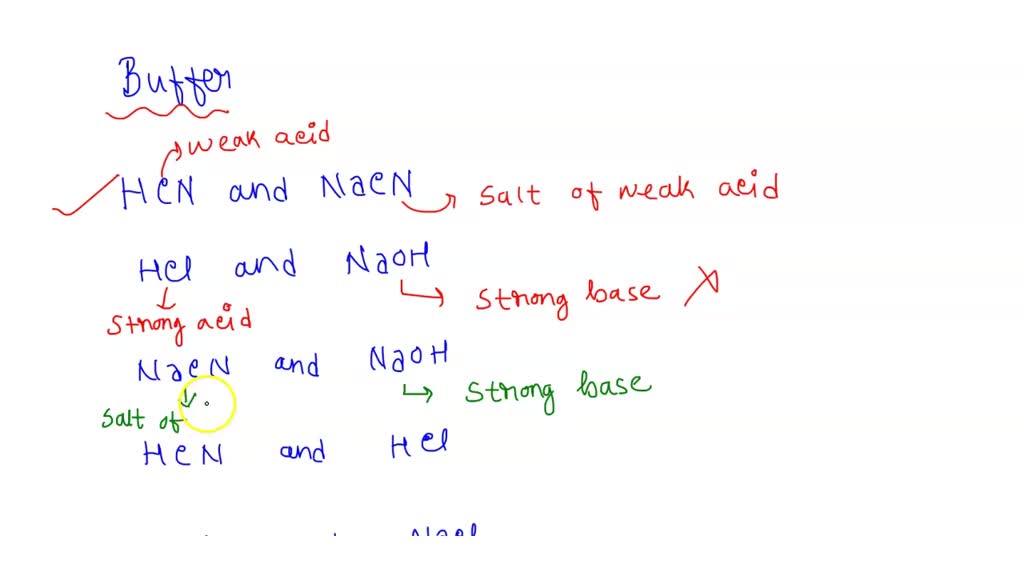 Buffer
weak acid
HCN and NaCN
Salt of weak acid
HCl and NaOH
Strong base
Strong acid
NaCN and NaOH
Strong base
Salt of
HCN and HCl